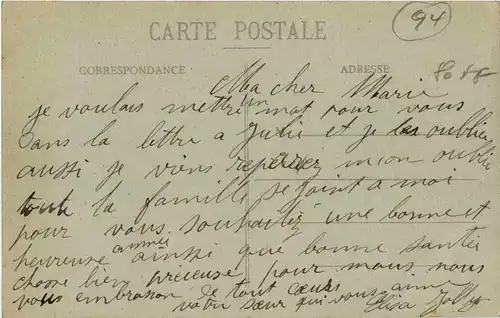 CARTE POSTALE
94
CORRESPONDANCE
ADRESSE
Ma cher Marie
je voulais mettre un mot pour vous
dans la lettre a Julie et je les oublie
aussi je viens reperer mon oublie
toute la famille se joint a moi
pour vous souhaitez une bonne et
heureuse année ainsi que bonne santée
choose bien precieuse pour nous. nous
vous embrasson de tout cœurs
votre sœur qui vous aime
Elisa